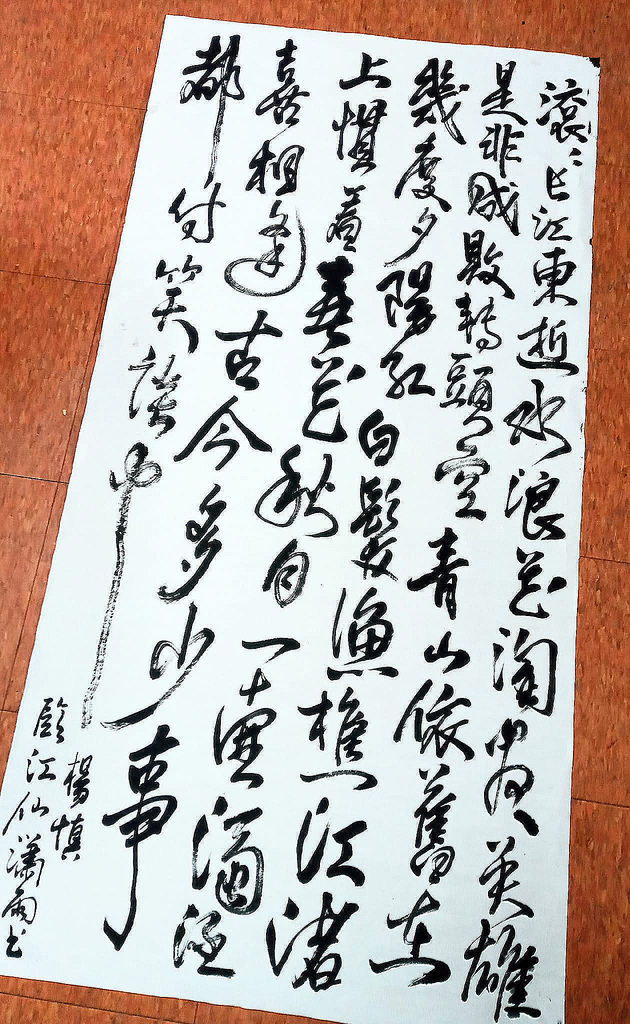 滾〻長江東逝水浪花淘尽英雄
是非成敗轉頭空青山依舊在
幾度夕陽紅白髮漁樵江渚
上慣看春花秋月一壺濁酒
喜相逢古今多少事
都付笑談中
楊慎
臨江仙瀟雨书